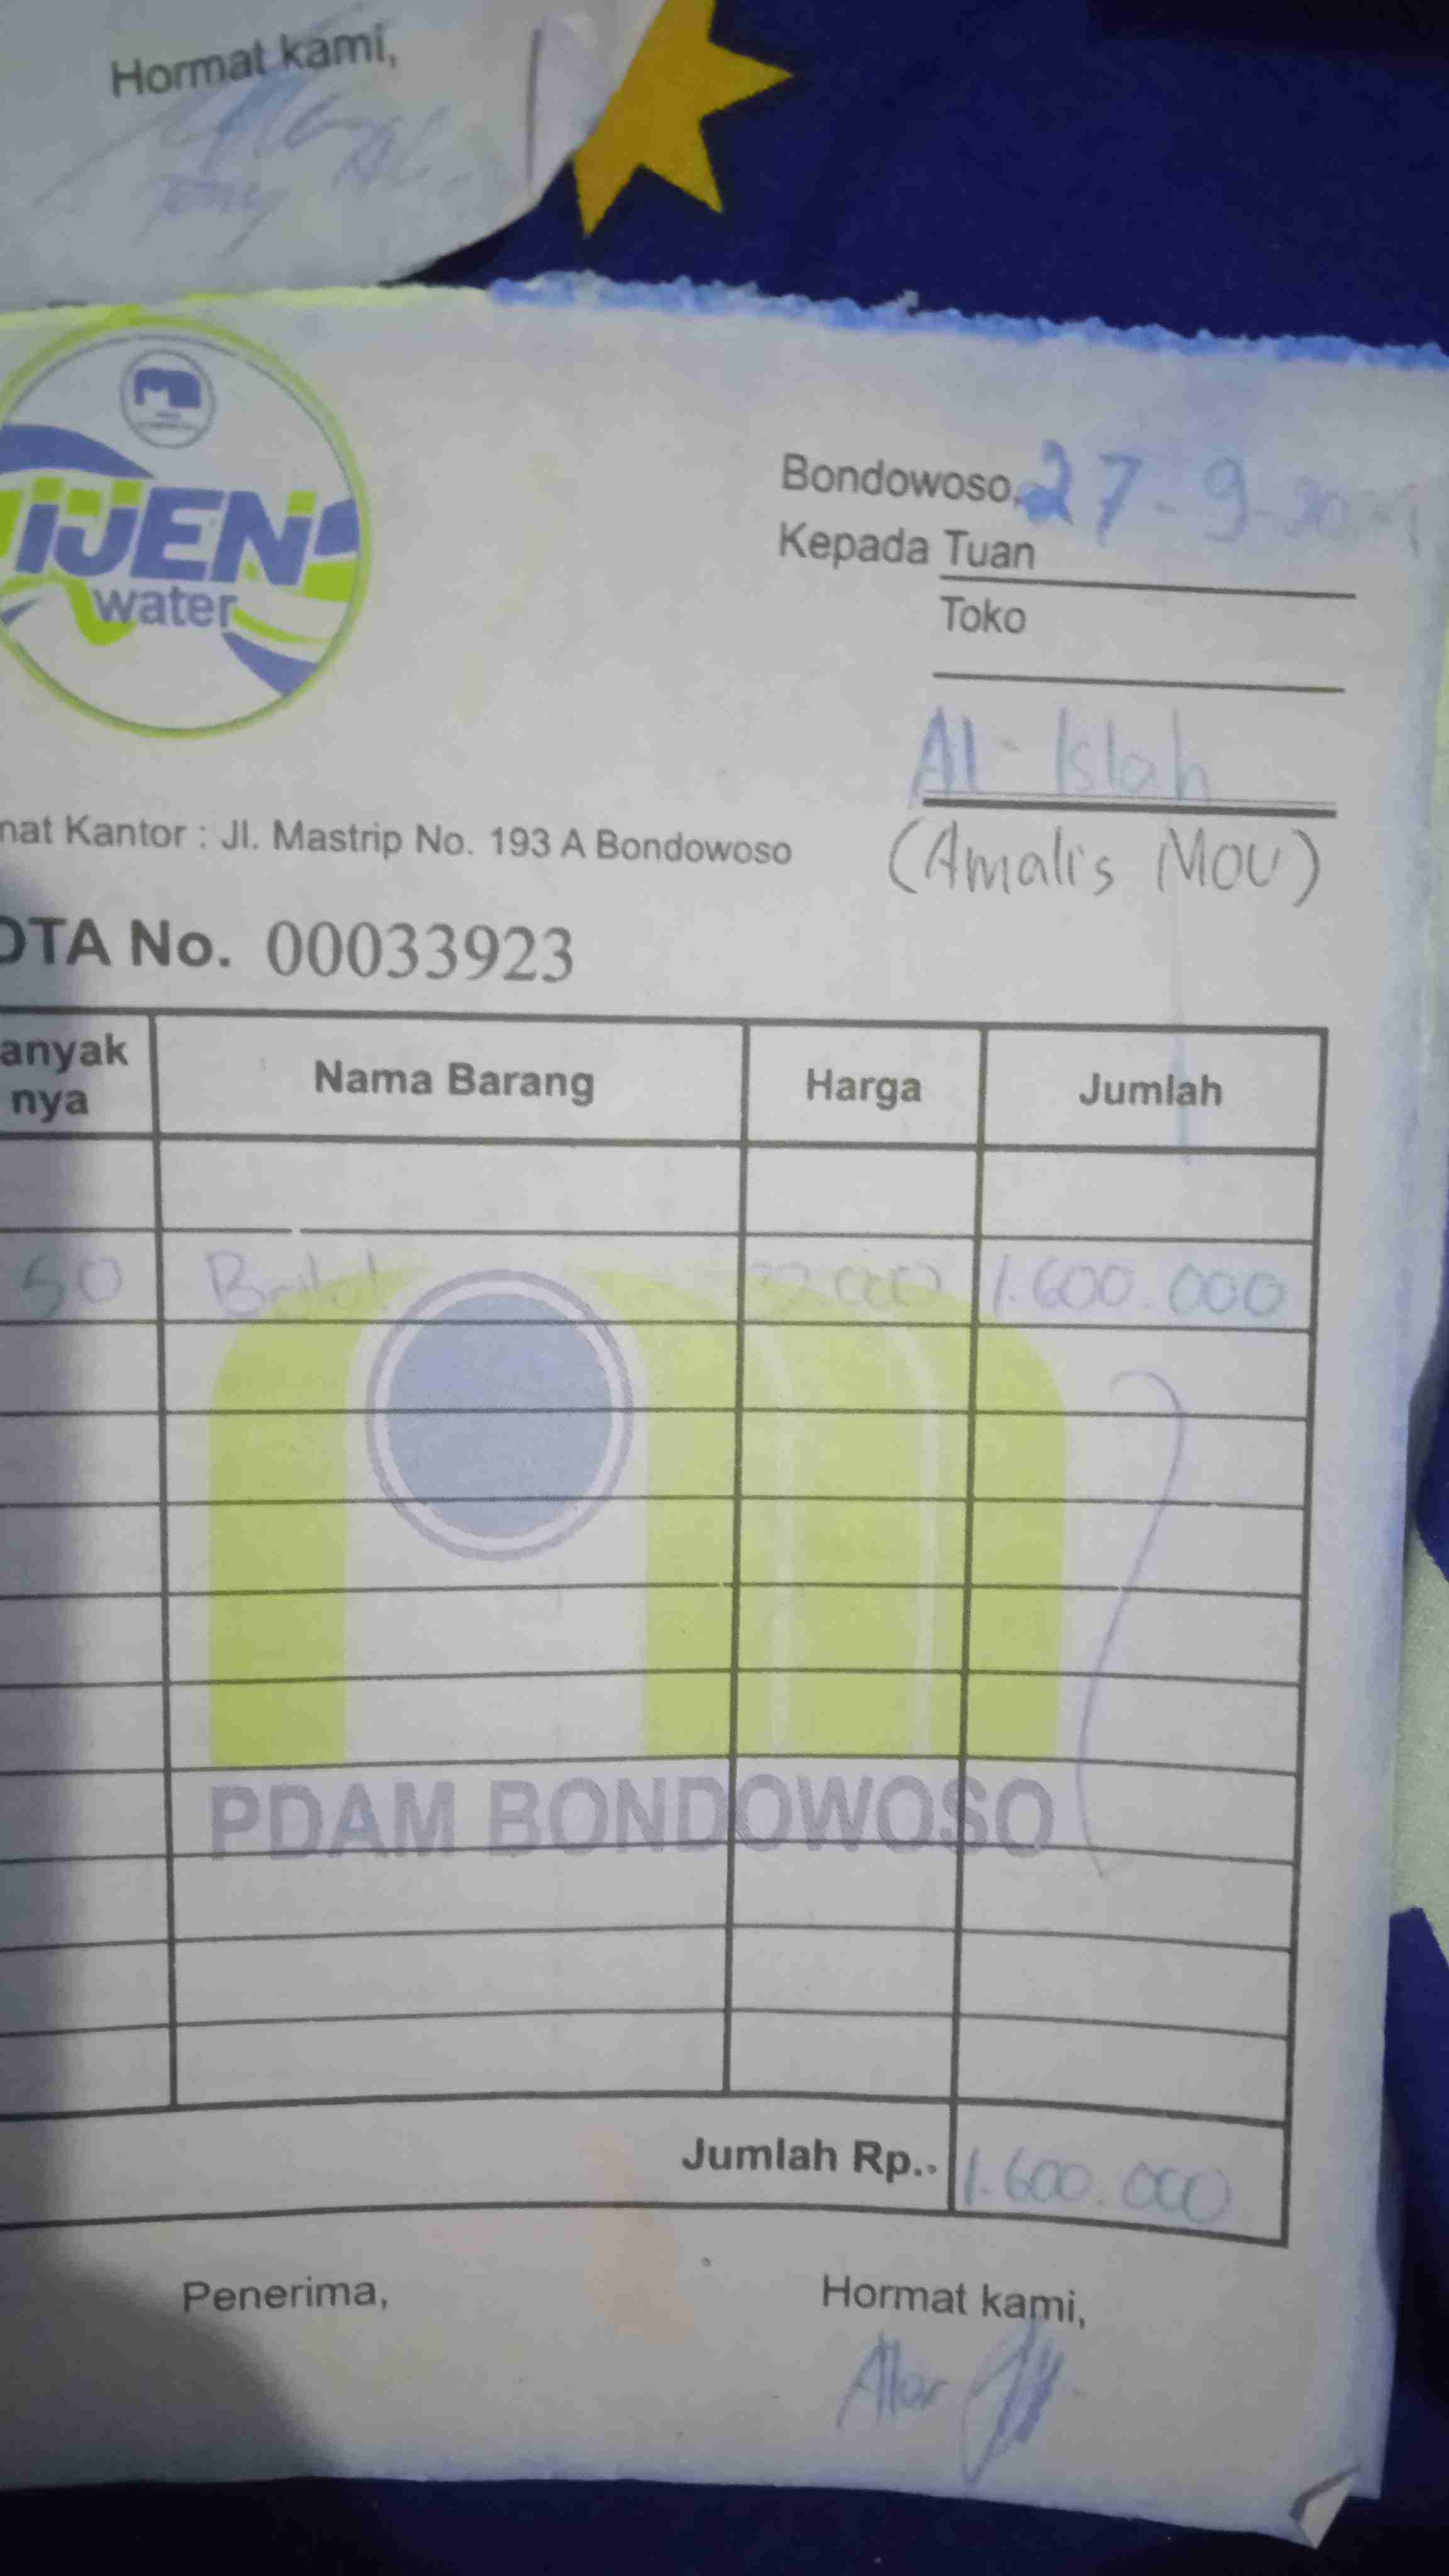 Hormat kami,
IJEN
water
Bondowoso, 27-9-20
Kepada Tuan
Toko
Al-Islah
(Amalis MOU)
mat Kantor : Jl. Mastrip No. 193 A Bondowoso
OTA No. 00033923
anyak
nya
Nama Barang
Harga
Jumlah
50 32.000 1.600.000
PDAM BONDOWOSO
Jumlah Rp.. 1.600.000
Penerima,
Hormat kami,